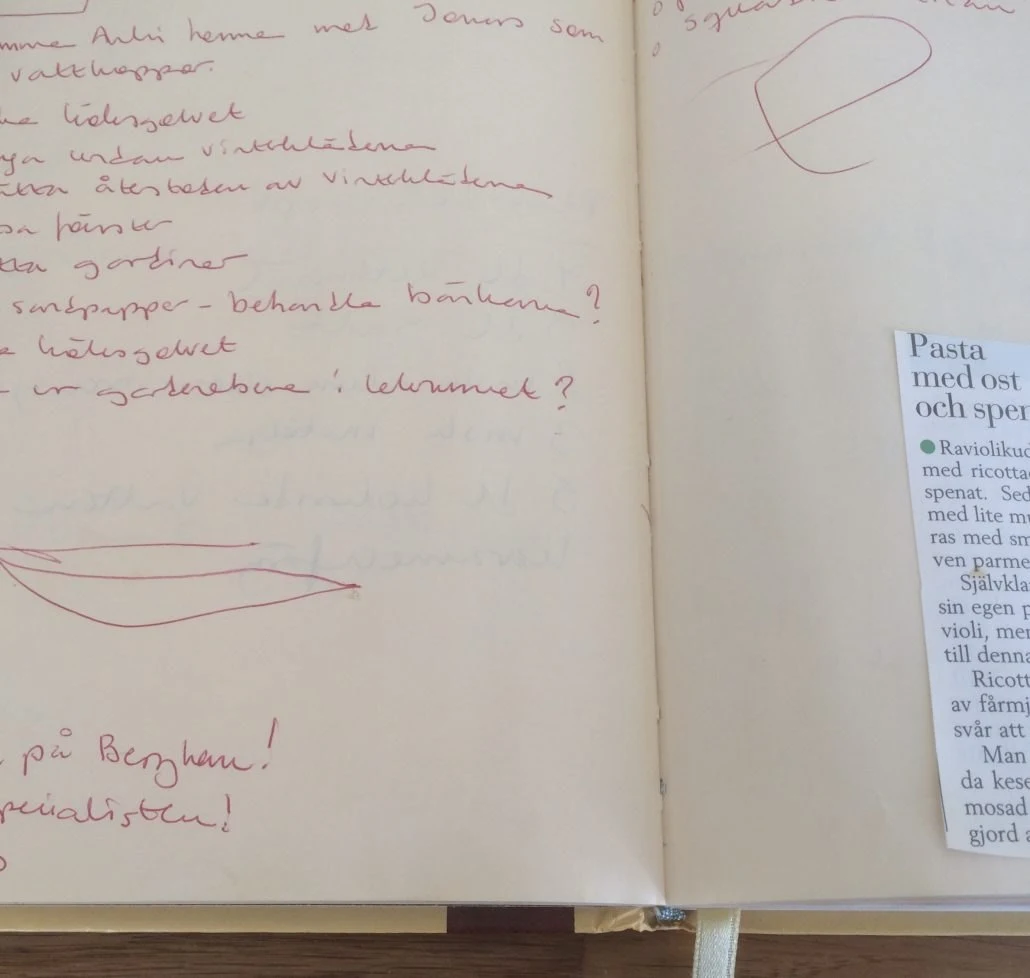 mme Anki henne med Jonas som
vattkoppor.
ka köksgolvet
undan vinterkläderna
ätta återstoden av vinterkläderna
sa fönster
tta gardiner
sandpapper - behandla bänkarna?
a köksgolvet
ur garderoberna i lekrummet?
på Berghem!
pecialisten!
Pasta
med ost
och spen
Raviolikud
med ricotta
spenat. Sed
med lite mu
ras med sm
ven parme
Självkla
sin egen p
violi, men
till denna
Ricott
av fårmj
svår att
Man
da kese
mosad
gjord a